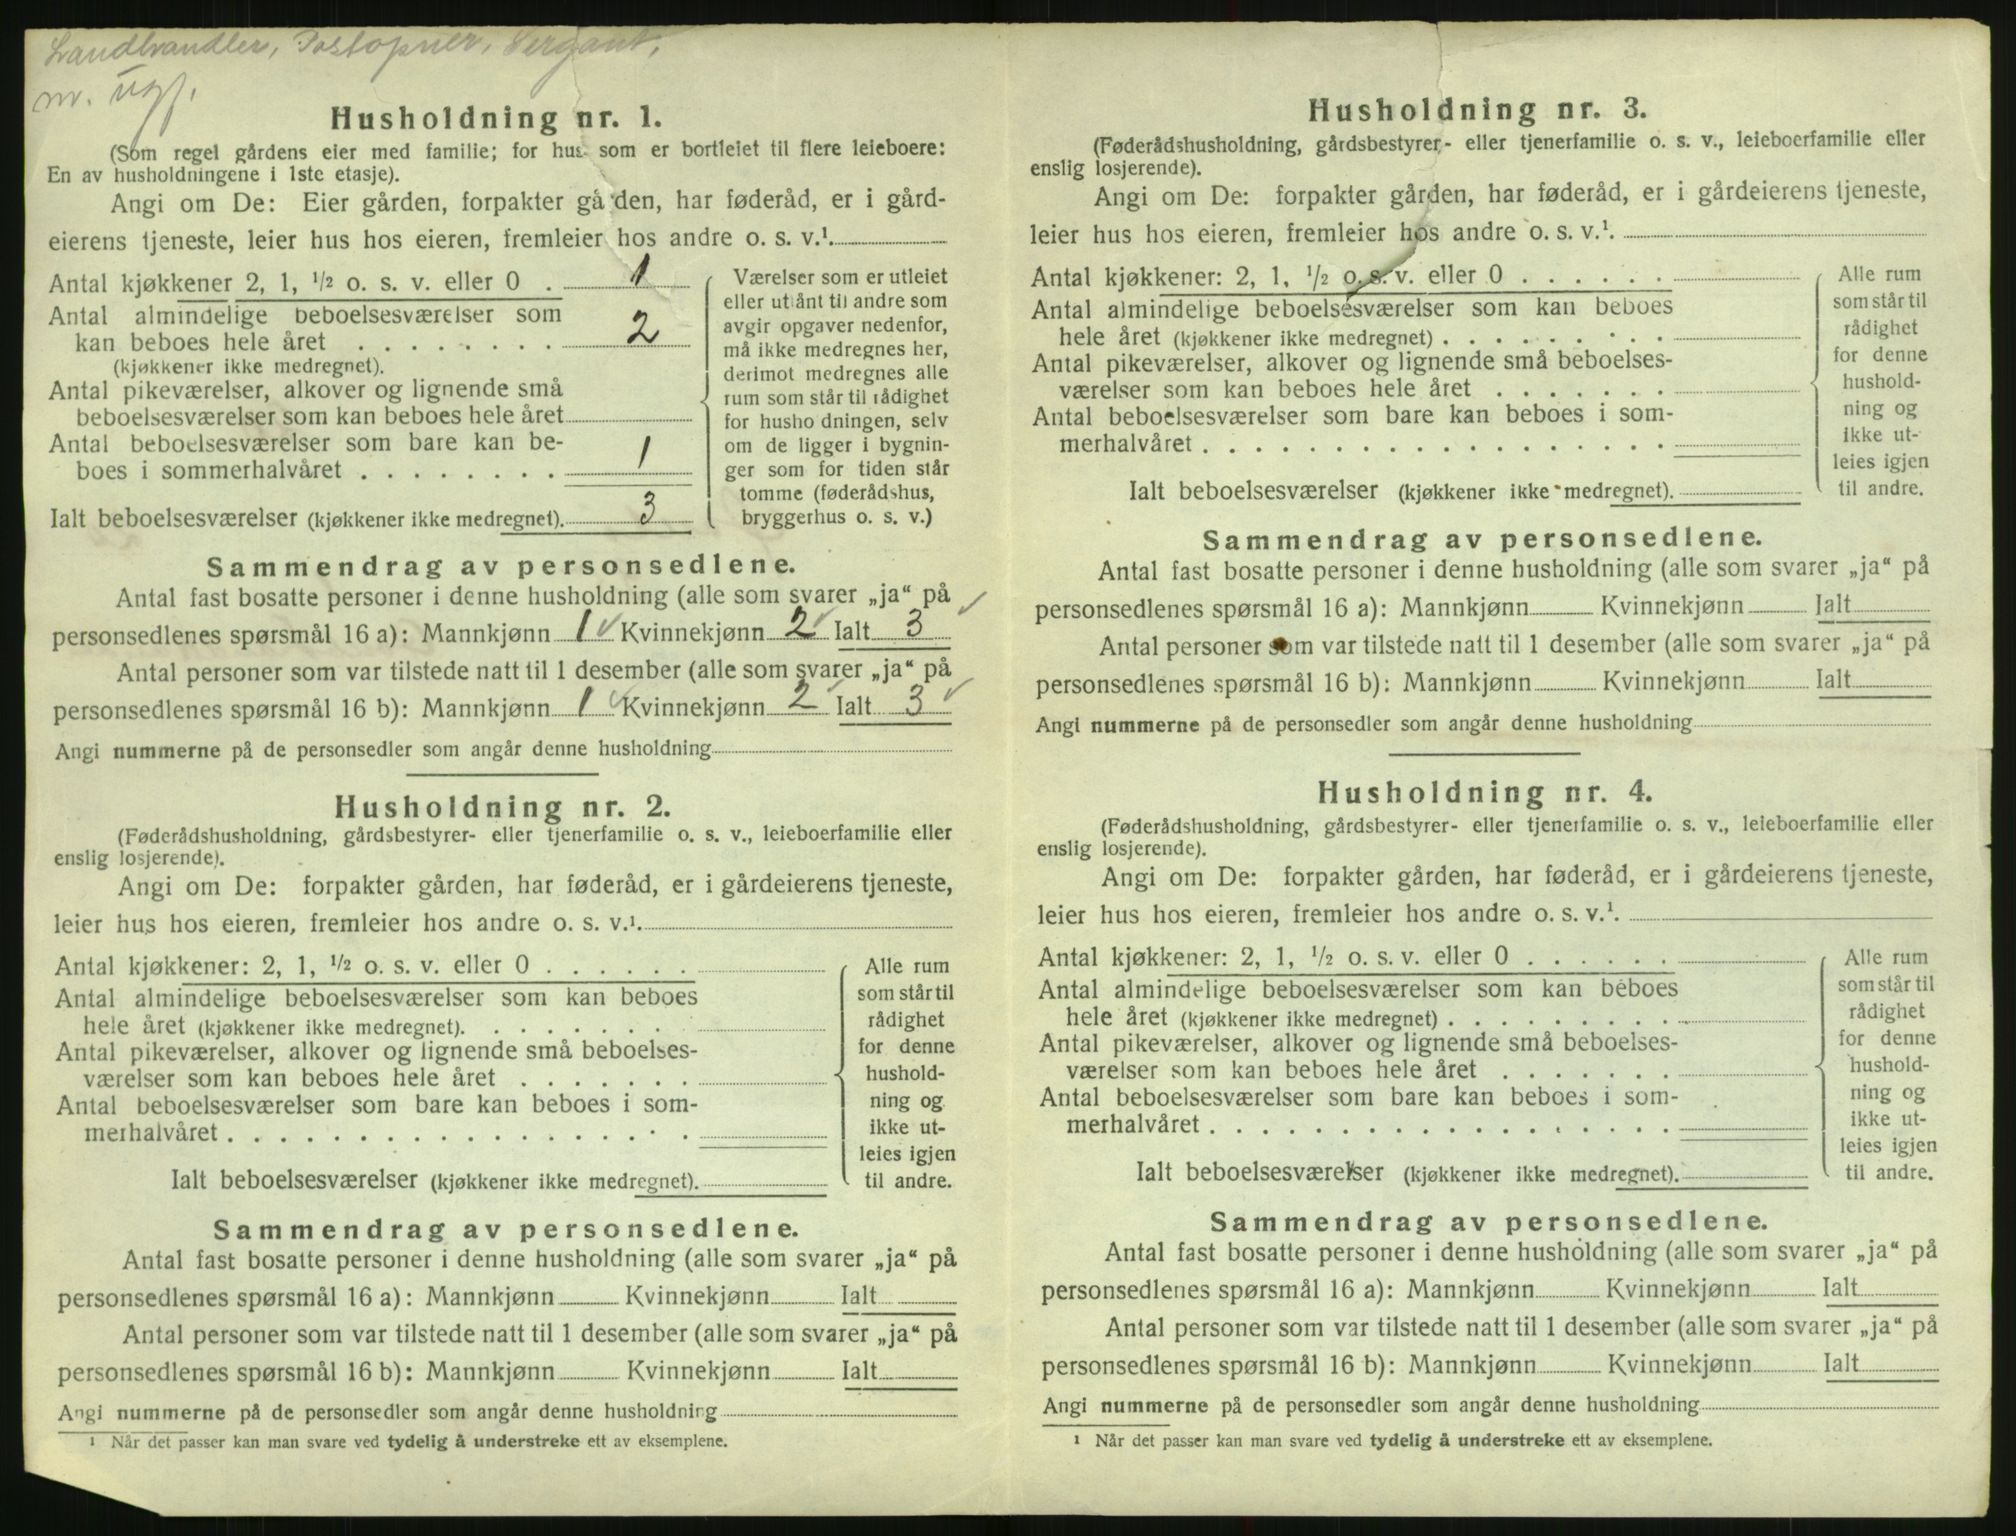 Landhandler, Postopner, Sergant,
m. ugf.
Husholdning nr. 1.
(Som regel gårdens eier med familie; for hus som er bortleiet til flere leieboere:
En av husholdningene i 1ste etasje).
Angi om De: Eier gården, forpakter gården, har føderåd, er i gård-
eierens tjeneste, leier hus hos eieren, fremleier hos andre o. s. v.¹
Antal kjøkkener 2, 1, ½ o. s. v. eller 0 . 1
Antal almindelige beboelsesværelser som
kan beboes hele året . . . . . . . . 2
(kjøkkener ikke medregnet).
Antal pikeværelser, alkover og lignende små
beboelsesværelser som kan beboes hele året
Antal beboelsesværelser som bare kan be-
boes i sommerhalvåret . . . . . . . . 1
Ialt beboelsesværelser (kjøkkener ikke medregnet). 3
Værelser som er utleiet
eller utlånt til andre som
avgir opgaver nedenfor,
må ikke medregnes her,
derimot medregnes alle
rum som står til rådighet
for husholdningen, selv
om de ligger i bygnin-
ger som for tiden står
tomme (føderådshus,
bryggerhus o. s. v.)
Sammendrag av personsedlene.
Antal fast bosatte personer i denne husholdning (alle som svarer „ja“ på
personsedlenes spørsmål 16 a): Mannkjønn 1 ✓ Kvinnekjønn 2 ✓ Ialt 3 ✓
Antal personer som var tilstede natt til 1 desember (alle som svarer „ja“ på
personsedlenes spørsmål 16 b): Mannkjønn 1 ✓ Kvinnekjønn 2 ✓ Ialt 3 ✓
Angi nummerne på de personsedler som angår denne husholdning
Husholdning nr. 2.
(Føderådshusholdning, gårdsbestyrer- eller tjenerfamilie o. s. v., leieboerfamilie eller
enslig losjerende).
Angi om De: forpakter gården, har føderåd, er i gårdeierens tjeneste,
leier hus hos eieren, fremleier hos andre o. s. v.¹.
Antal kjøkkener: 2, 1, ½ o. s. v. eller 0 . . . . . .
Antal almindelige beboelsesværelser som kan beboes
hele året (kjøkkener ikke medregnet). . . . . . . .
Antal pikeværelser, alkover og lignende små beboelses-
værelser som kan beboes hele året . . . . . . .
Antal beboelsesværelser som bare kan beboes i som-
merhalvåret . . . . . . . . . . . . . . . . . .
Ialt beboelsesværelser (kjøkkener ikke medregnet).
Alle rum
som står til
rådighet
for denne
hushold-
ning og
ikke ut-
leies igjen
til andre.
Sammendrag av personsedlene.
Antal fast bosatte personer i denne husholdning (alle som svarer „ja“ på
personsedlenes spørsmål 16 a): Mannkjønn Kvinnekjønn Ialt
Antal personer som var tilstede natt til 1 desember (alle som svarer „ja“ på
personsedlenes spørsmål 16 b): Mannkjønn Kvinnekjønn Ialt
Angi nummerne på de personsedler som angår denne husholdning
¹ Når det passer kan man svare ved tydelig å understreke ett av eksemplene.
Husholdning nr. 3.
(Føderådshusholdning, gårdsbestyrer- eller tjenerfamilie o. s. v., leieboerfamilie eller
enslig losjerende).
Angi om De: forpakter gården, har føderåd, er i gårdeierens tjeneste,
leier hus hos eieren, fremleier hos andre o. s. v.¹.
Antal kjøkkener: 2, 1, ½ o. s. v. eller 0 . . . . . .
Antal almindelige beboelsesværelser som kan beboes
hele året (kjøkkener ikke medregnet) . . . . . . . . .
Antal pikeværelser, alkover og lignende små beboelses-
værelser som kan beboes hele året . . . . . . .
Antal beboelsesværelser som bare kan beboes i som-
merhalvåret . . . . . . . . . . . . . . . . . .
Ialt beboelsesværelser (kjøkkener ikke medregnet).
Alle rum
som står til
rådighet
for denne
hushold-
ning og
ikke ut-
leies igjen
til andre.
Sammendrag av personsedlene.
Antal fast bosatte personer i denne husholdning (alle som svarer „ja“ på
personsedlenes spørsmål 16 a): Mannkjønn Kvinnekjønn Ialt
Antal personer som var tilstede natt til 1 desember (alle som svarer „ja“ på
personsedlenes spørsmål 16 b): Mannkjønn Kvinnekjønn Ialt
Angi nummerne på de personsedler som angår denne husholdning
Husholdning nr. 4.
(Føderådshusholdning, gårdsbestyrer- eller tjenerfamilie o. s. v., leieboerfamilie eller
enslig losjerende).
Angi om De: forpakter gården, har føderåd, er i gårdeierens tjeneste,
leier hus hos eieren, fremleier hos andre o. s. v.¹.
Antal kjøkkener: 2, 1, ½ o. s. v. eller 0 . . . . . .
Antal almindelige beboelsesværelser som kan beboes
hele året (kjøkkener ikke medregnet) . . . . . . . . .
Antal pikeværelser, alkover og lignende små beboelses-
værelser som kan beboes hele året . . . . . . .
Antal beboelsesværelser som bare kan beboes i som-
merhalvåret . . . . . . . . . . . . . . . . . .
Ialt beboelsesværelser (kjøkkener ikke medregnet).
Alle rum
som står til
rådighet
for denne
hushold-
ning og
ikke ut-
leies igjen
til andre.
Sammendrag av personsedlene.
Antal fast bosatte personer i denne husholdning (alle som svarer „ja“ på
personsedlenes spørsmål 16 a): Mannkjønn Kvinnekjønn Ialt
Antal personer som var tilstede natt til 1 desember (alle som svarer „ja“ på
personsedlenes spørsmål 16 b): Mannkjønn Kvinnekjønn Ialt
Angi nummerne på de personsedler som angår denne husholdning
¹ Når det passer kan man svare ved tydelig å understreke ett av eksemplene.